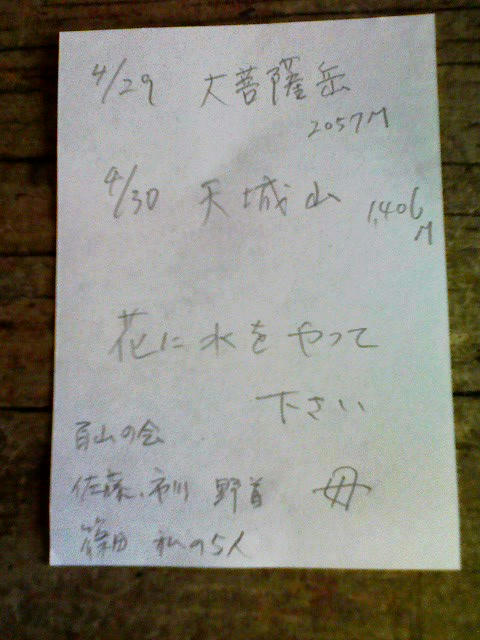 4/29 大菩薩岳
2057M
4/30 天城山 1,406
M
花に水をやって
下さい
百山の会
佐藤、市川 野首 母
篠田 私の5人